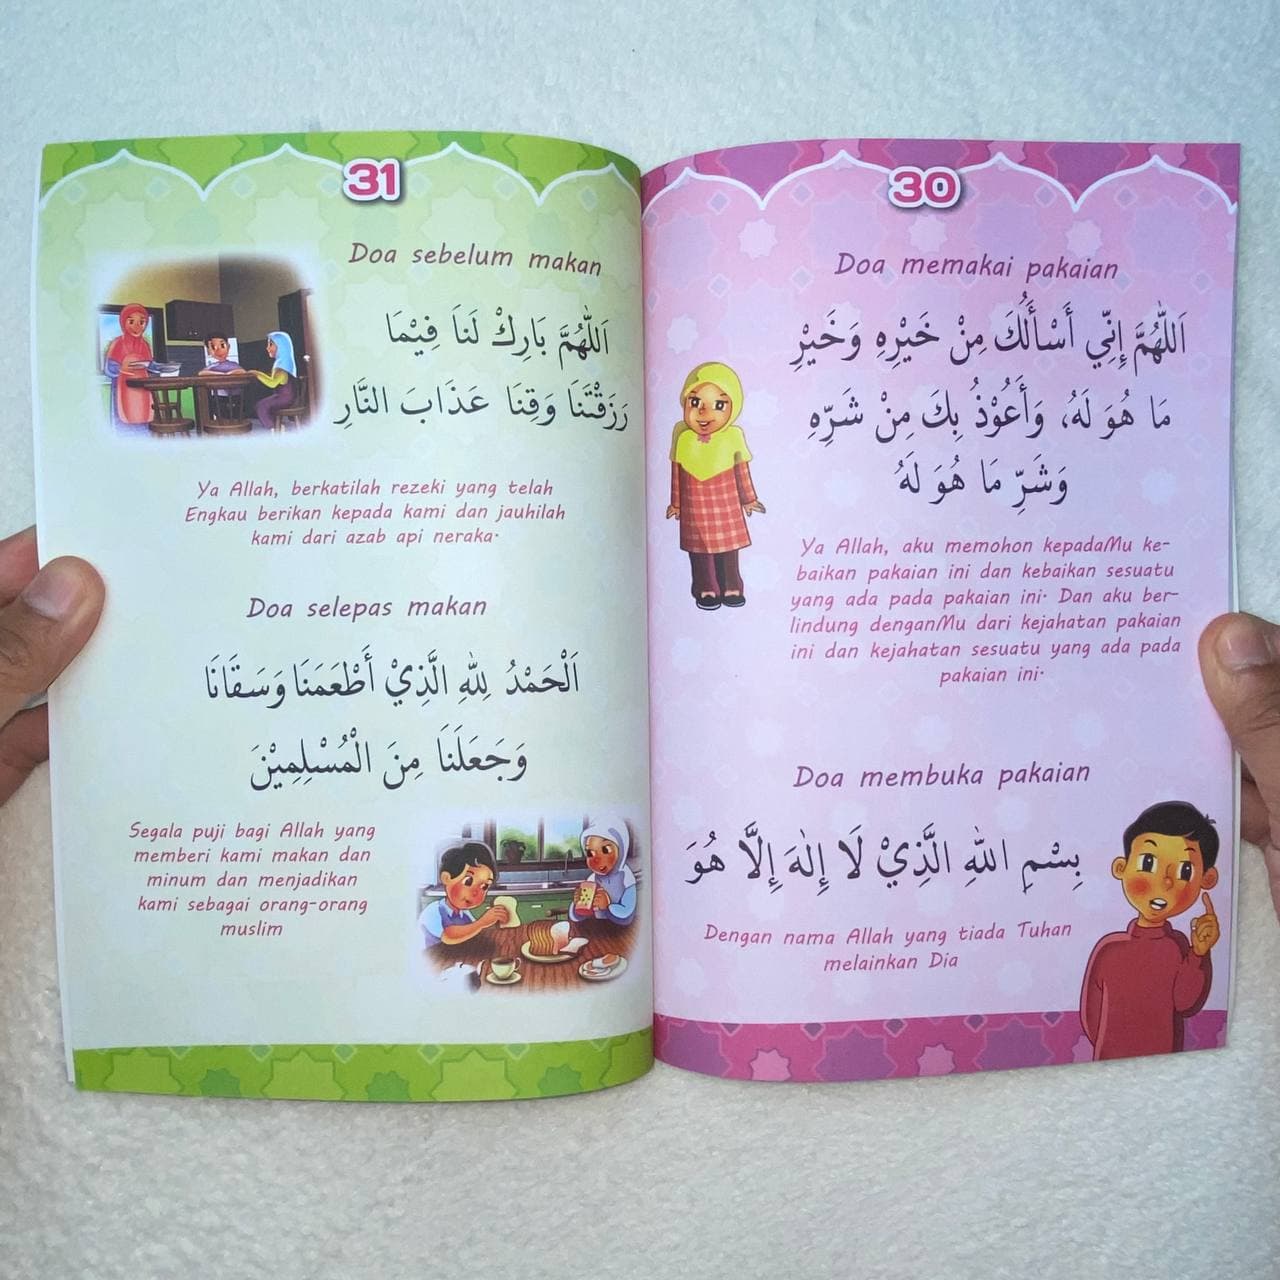 30
Doa memakai pakaian
اَللّٰهُمَّ إِنِّي أَسْأَلُكَ مِنْ خَيْرِهِ وَخَيْرِ
مَا هُوَ لَهُ، وَأَعُوْذُ بِكَ مِنْ شَرِّهِ
وَشَرِّ مَا هُوَ لَهُ
Ya Allah, aku memohon kepadaMu ke-
baikan pakaian ini dan kebaikan sesuatu
yang ada pada pakaian ini. Dan aku ber-
lindung denganMu dari kejahatan pakaian
ini dan kejahatan sesuatu yang ada pada
pakaian ini.
Doa membuka pakaian
بِسْمِ اللهِ الَّذِيْ لَا إِلٰهَ إِلَّا هُوَ
Dengan nama Allah yang tiada Tuhan
melainkan Dia
31
Doa sebelum makan
اَللّٰهُمَّ بَارِكْ لَنَا فِيْمَا
رَزَقْتَنَا وَقِنَا عَذَابَ النَّارِ
Ya Allah, berkatilah rezeki yang telah
Engkau berikan kepada kami dan jauhilah
kami dari azab api neraka.
Doa selepas makan
اَلْحَمْدُ لِلّٰهِ الَّذِيْ أَطْعَمَنَا وَسَقَانَا
وَجَعَلَنَا مِنَ الْمُسْلِمِيْنَ
Segala puji bagi Allah yang
memberi kami makan dan
minum dan menjadikan
kami sebagai orang-orang
muslim